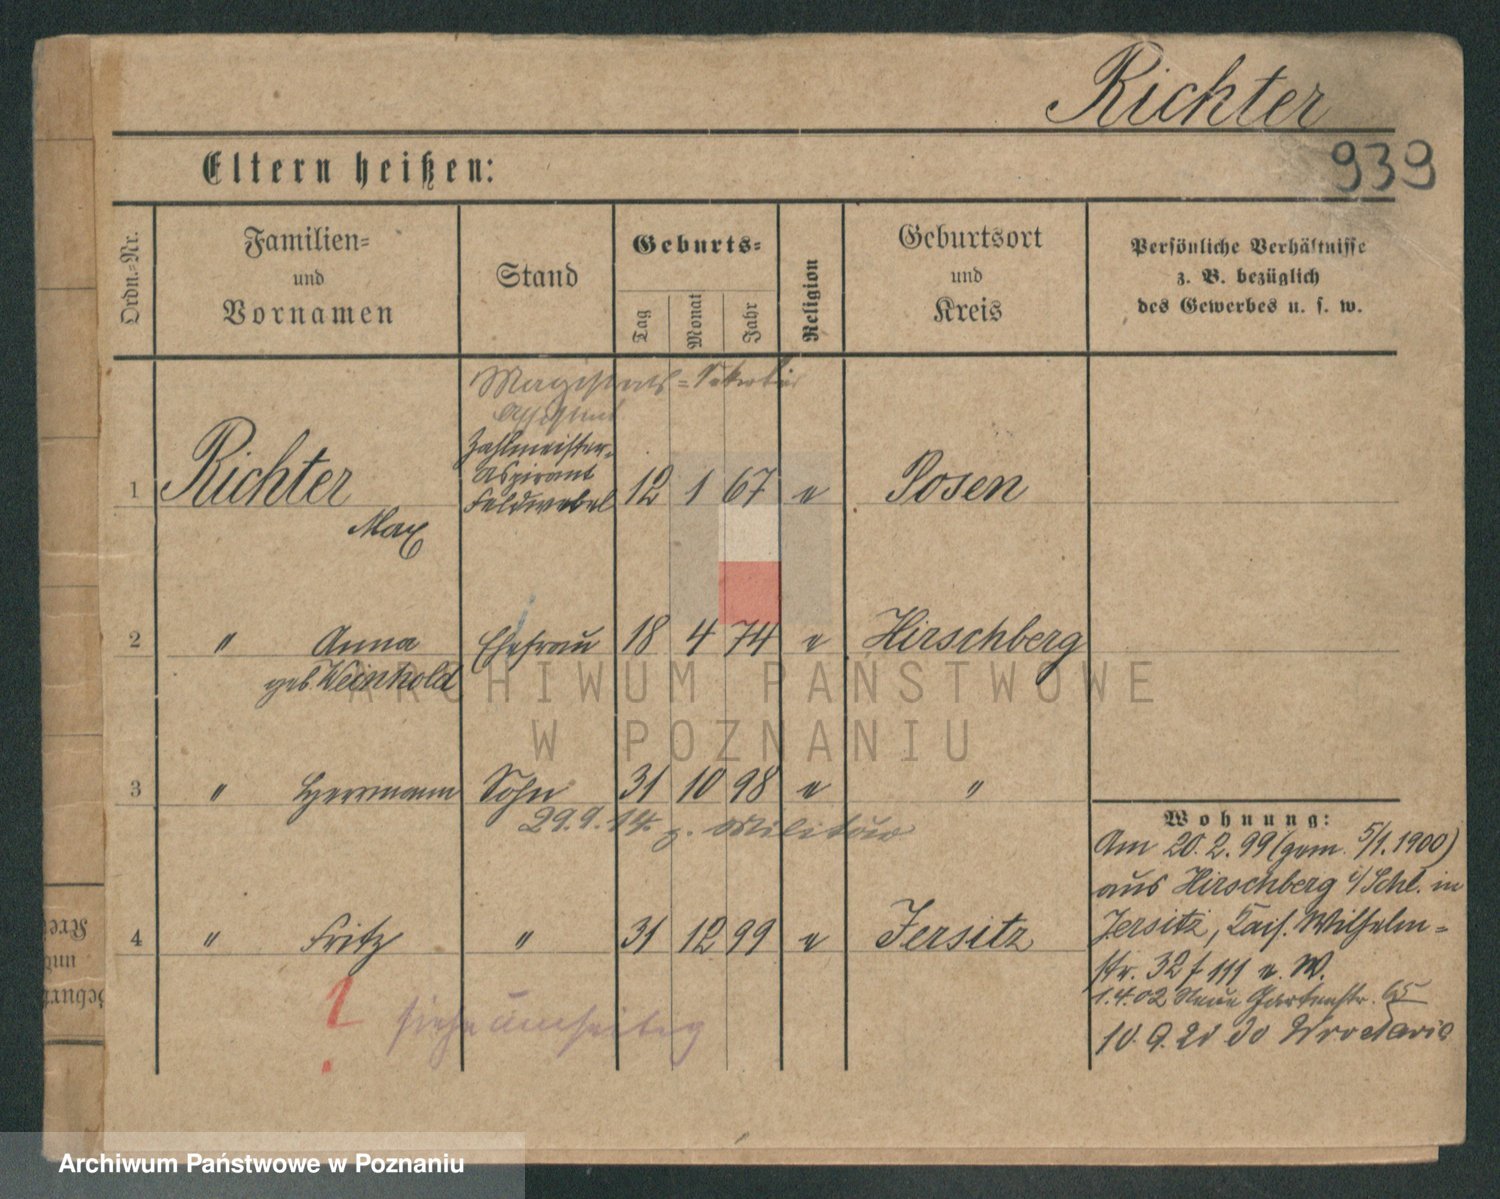 Richter
939
Eltern heißen:
Ordn.-Nr.
Familien-
und
Vornamen
Stand
Geburts-
Tag
Monat
Jahr
Religion
Geburtsort
und
Kreis
Persönliche Verhältnisse
z. B. bezüglich
des Gewerbes u. s. w.
Magistrats-Sekretär
Assistent
Zahlmeister-
Aspirant
1 Richter Feldwebel 12 1 67 e Posen
Max
2 " Anna Ehefrau 18 4 74 e Hirschberg
geb. Weinhold
3 " Herrmann Sohn 31 10 98 e "
29.9.14. z. Militär
4 " Fritz " 31 12 99 e Jersitz
siehe umseitig
Wohnung:
Am 20.2.99 (gem. 5/1.1900)
aus Hirschberg i/Schl. in
Jersitz, Kais. Wilhelm-
str. 32 f III e. W.
1.4.02 Neue Gartenstr. 65
10.9.21 do Wrocławia
Kreis
und
Geburts
ARCHIWUM PAŃSTWOWE
W POZNANIU
Archiwum Państwowe w Poznaniu